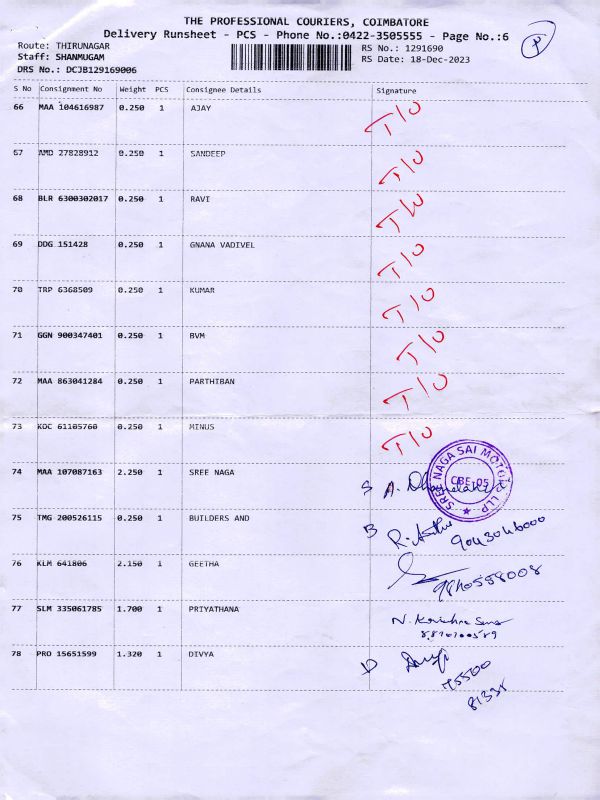 THE PROFESSIONAL COURIERS, COIMBATORE
Delivery Runsheet - PCS - Phone No.:0422-3505555 - Page No.:6
Route: THIRUNAGAR RS No.: 1291690
Staff: SHANMUGAM RS Date: 18-Dec-2023
DRS No.: DCJB129169006
S No Consignment No Weight PCS Consignee Details Signature
66 MAA 104616987 0.250 1 AJAY T/O
67 AMD 27828912 0.250 1 SANDEEP T/O
68 BLR 6300302017 0.250 1 RAVI T/O
69 DDG 151428 0.250 1 GNANA VADIVEL T/O
70 TRP 6368509 0.250 1 KUMAR T/O
71 GGN 900347401 0.250 1 BVM T/O
72 MAA 863041284 0.250 1 PARTHIBAN T/O
73 KOC 61105760 0.250 1 MINUS T/O
74 MAA 107087163 2.250 1 SREE NAGA S A.
SREE NAGA SAI MOTORS LLP
CBE-05
75 TMG 200526115 0.250 1 BUILDERS AND B R. 9043046000
76 KLM 641806 2.150 1 GEETHA 9840558008
77 SLM 335061785 1.700 1 PRIYATHANA N. Krishna
78 PRO 15651599 1.320 1 DIVYA D
75500
81338